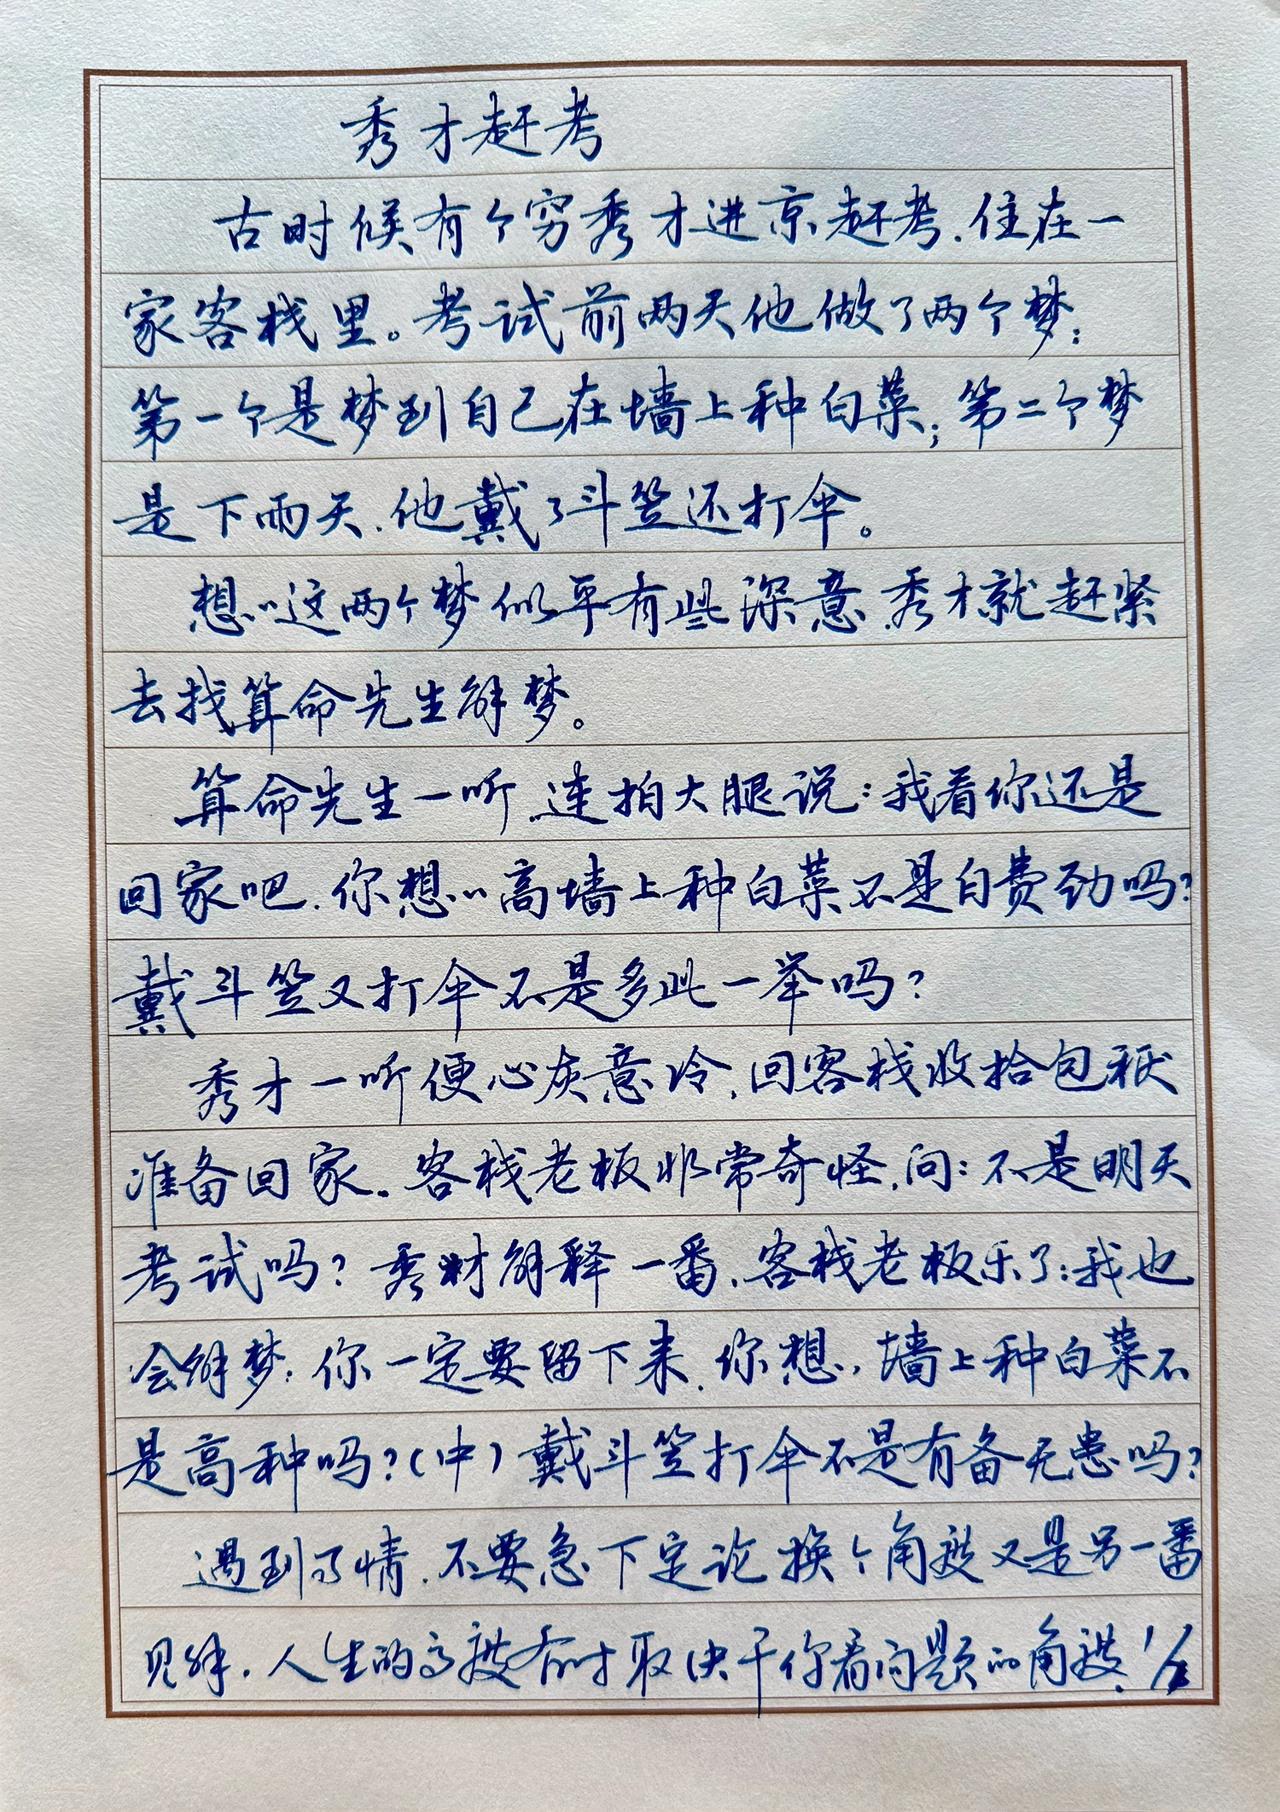 秀才赶考
古时候有个穷秀才进京赶考.住在一
家客栈里。考试前两天他做了两个梦:
第一个是梦到自己在墙上种白菜;第二个梦
是下雨天.他戴了斗笠还打伞。
想想这两个梦似乎有些深意.秀才就赶紧
去找算命先生解梦。
算命先生一听.连拍大腿说:我看你还是
回家吧.你想想高墙上种白菜不是白费劲吗?
戴斗笠又打伞不是多此一举吗?
秀才一听便心灰意冷.回客栈收拾包袱
准备回家。客栈老板非常奇怪.问:不是明天
考试吗?秀才解释一番.客栈老板乐了:我也
会解梦:你一定要留下来.你想,墙上种白菜不
是高种吗?(中)戴斗笠打伞不是有备无患吗?
遇到事情.不要急下定论换个角度又是另一番
见解.人生的高度有时取决于你看问题的角度.